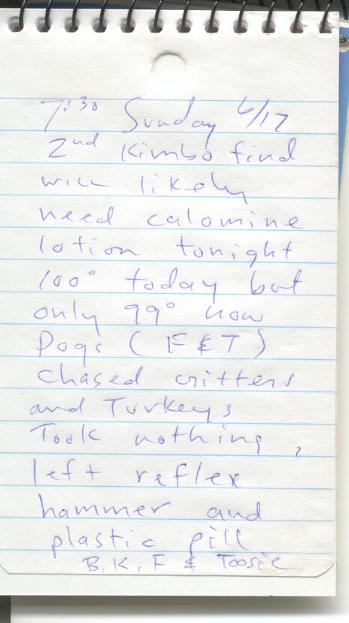 7:30 Sunday 6/17
2nd Kimbo find
will likely
need calomine
lotion tonight
100° today but
only 99° now
Dogs (F & T)
chased critters
and Turkeys
Took nothing,
left reflex
hammer and
plastic pill
B, K, F & Toosie